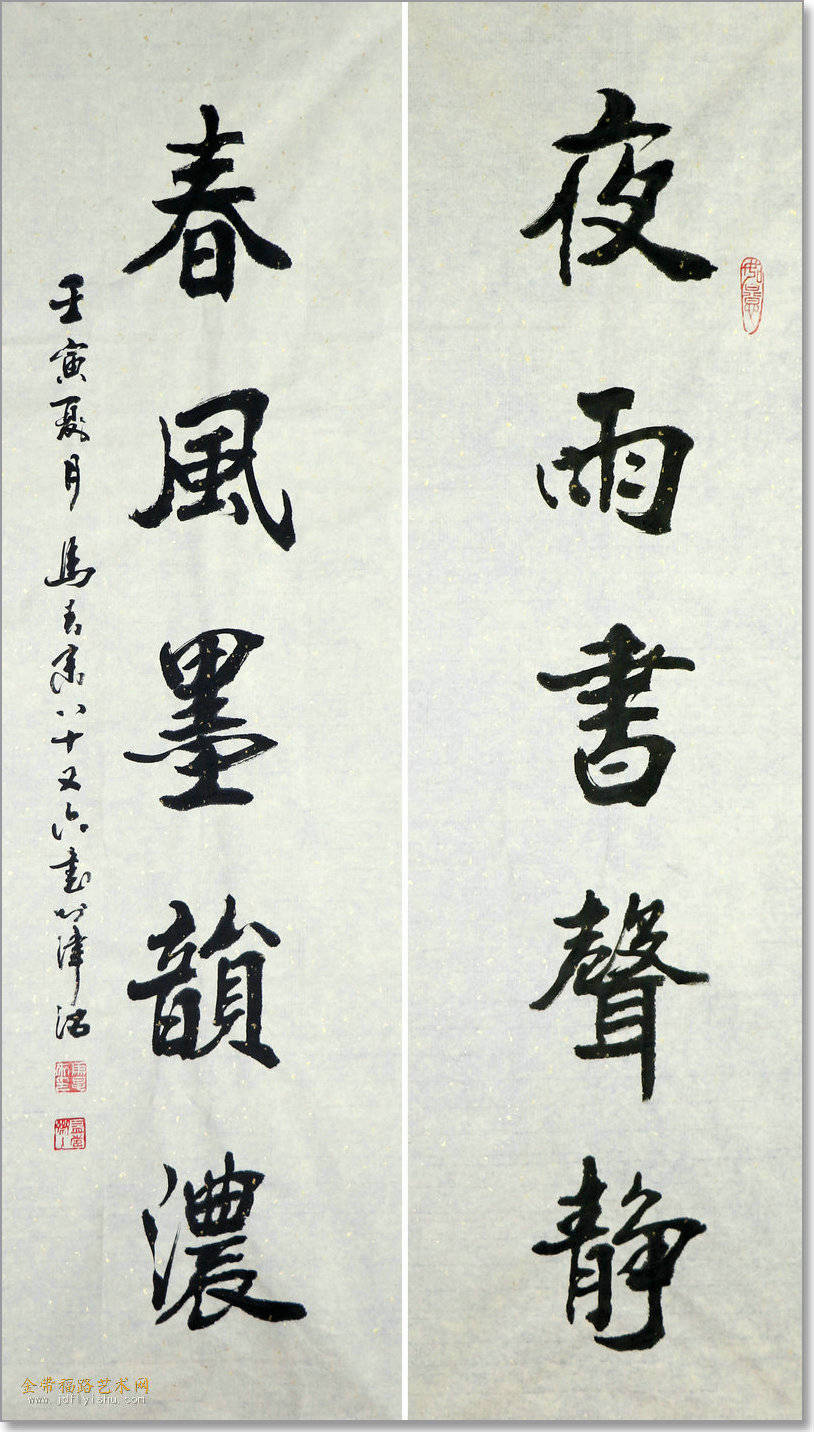 夜雨書聲靜
春風墨韻濃
壬寅夏月 馬 八十又六書於津沽
金带福路艺术网
www.jdflyishu.com